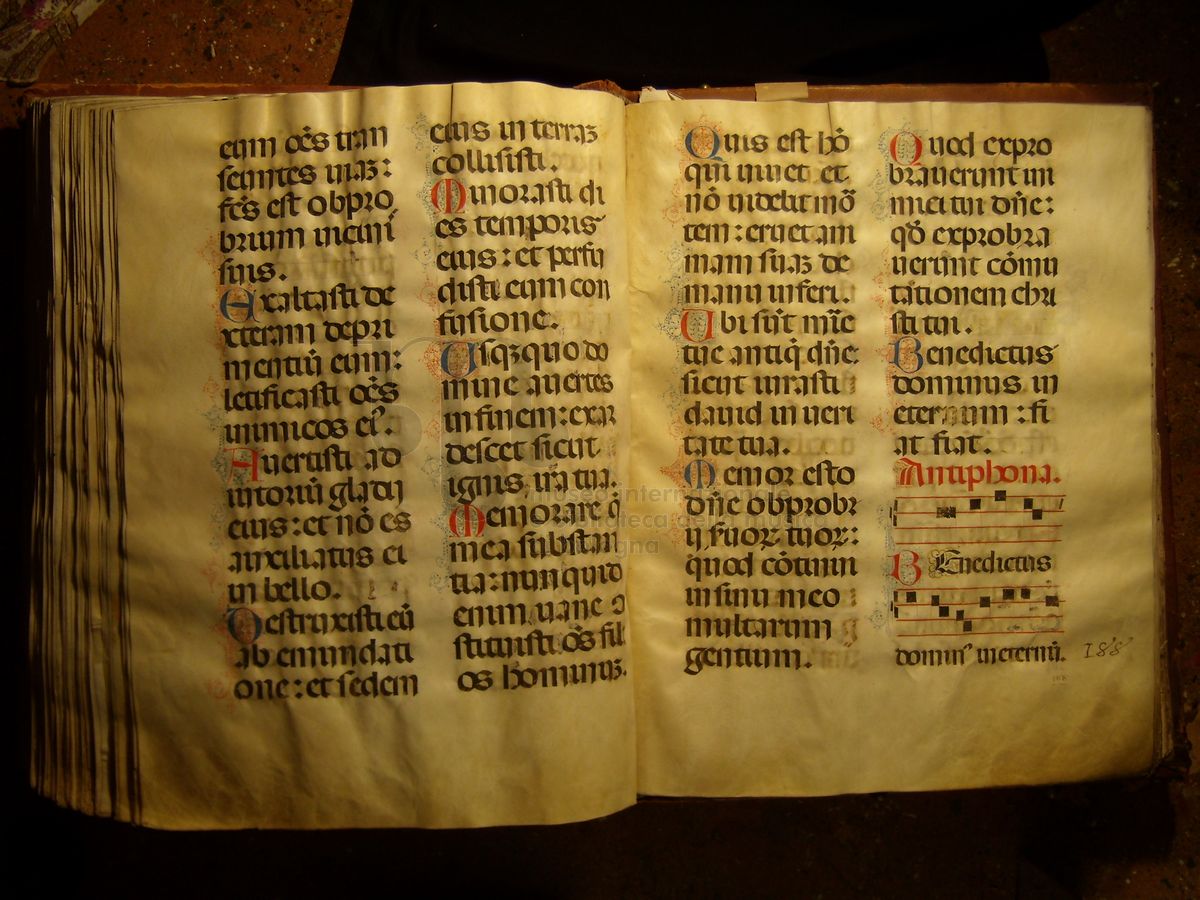 eum oēs tran
seuntes uiaʒ:
fc̄s est obpro
brium uicini
suis.
Exaltasti de
xteram depri
mentiū eum:
letificasti oēs
inimicos eiꝰ.
Auertisti ad
iutoriū gladij
eius: et nō es
auxiliatus ei
in bello.
Destruxisti eū
ab emundati
one: et sedem
eius in terraʒ
collisisti.
Minorasti di
es temporis
eius: et perfu
disti eum con
fusione.
Usqʒ quo do
mine auertes
in finem: exar
descet sicut
ignis ira tua.
Memorare q̄
mea substan
tia: nunquid
enim uane 9
stituisti oēs fili
os hominuʒ.
Quis est hō
qui uiuet et
nō uidebit mō
tem: eruet am
mam suaʒ de
manu inferi.
Ubi sūt mīe
tue antiq̄ dn̄e:
sicut iurasti
dauid in ueri
tate tua.
Memor esto
dn̄e obprobr
ij suoꝝ tuoꝝ:
quod cōtinui
in sinu meo
multarum
gentium.
Quod expro
brauerunt ini
mici tui dn̄e:
qd̄ exprobra
uerunt cōmu
tationem chri
sti tui.
Benedictus
dominus in
eternum: fi
at fiat.
Antiphona.
BEnedictus
dominꝰ in eternū.
188
museo internazionale
biblioteca della musica
bologna